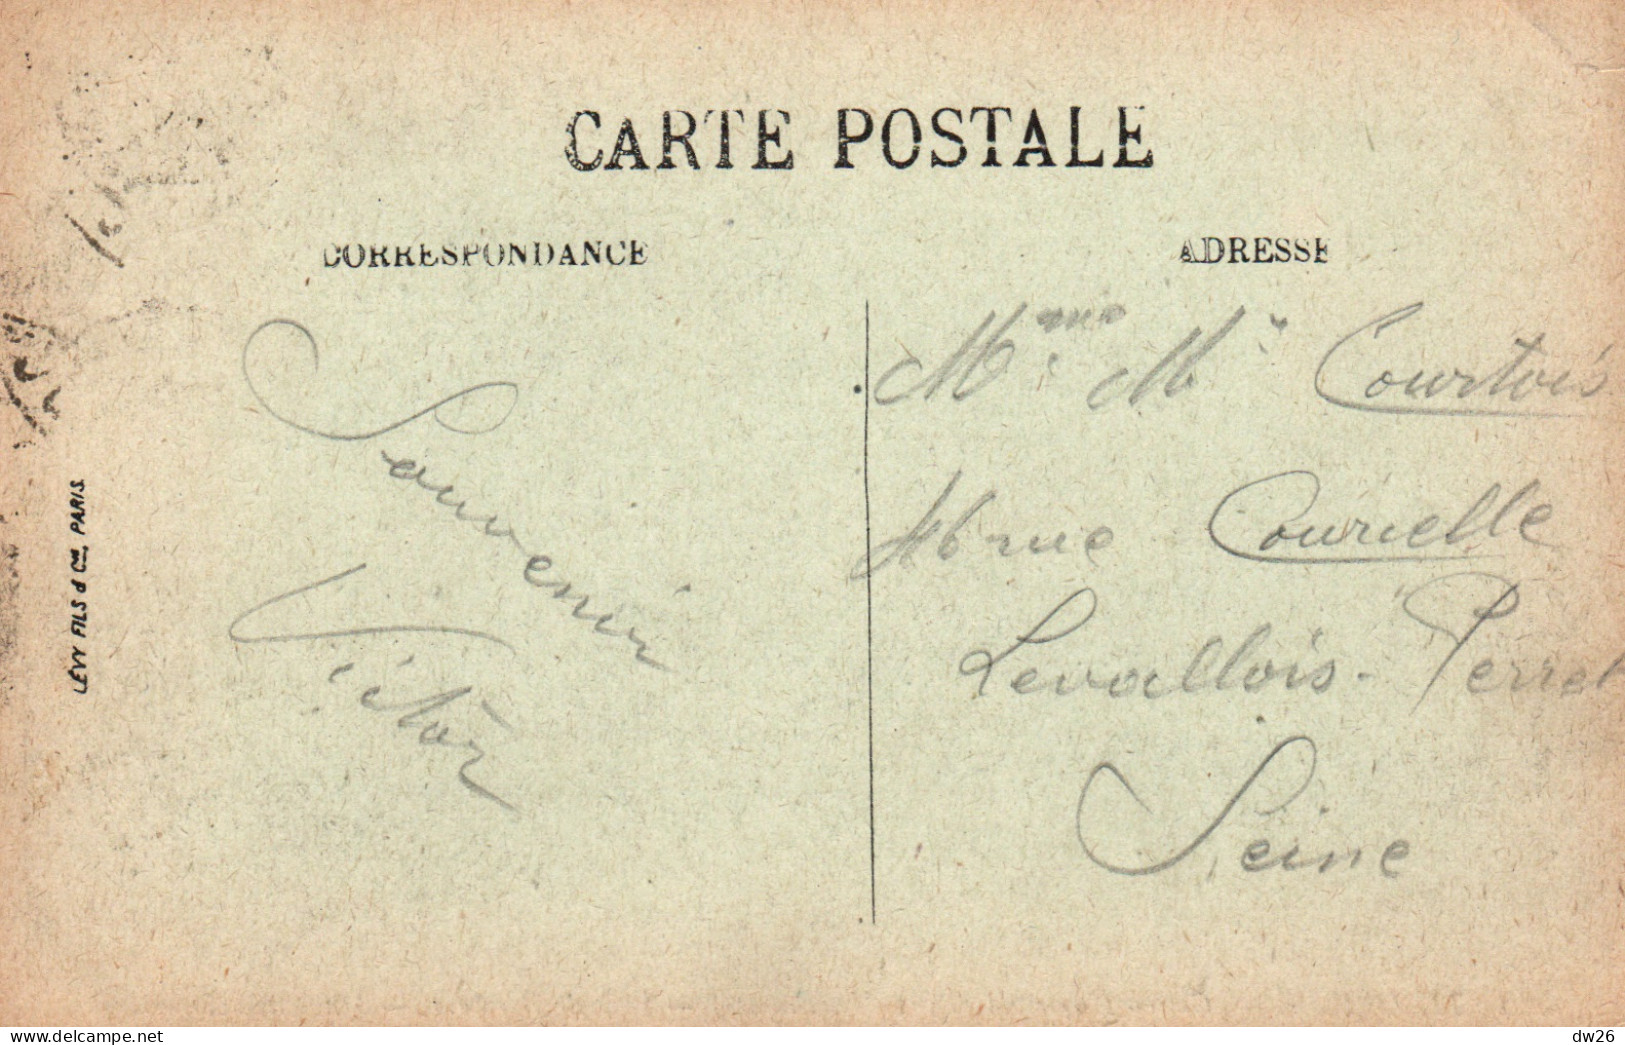 CARTE POSTALE
CORRESPONDANCE
ADRESSE
Souvenir
Victor
Mme M Courtois
46 rue Courcelle
Levallois-Perret
Seine
LÉVY FILS & Cie, PARIS
https://www.delcampe.net
dw26